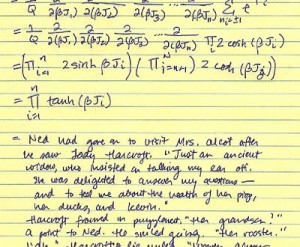 = 1/Q 2/2(βJ₁) 2/2(βJ₂) 2/2(βJ₃) ... 2/2(βJₙ) Σ
= 1/Q 2/2(βJ₁) 2/2(βJ₂) 2/2(βJ₃) ... 2/2(βJₙ) Π 2 cosh (βJᵢ)
= (Π 2 sinh βJᵢ) (Π 2 cosh (βJ))
= Π tanh (βJᵢ)
= Ned had gone on to visit Mrs. Alcot after
he saw Lady Harcroft. "Just an ancient
widow, who insisted on talking my ear off.
She was delighted to answer my questions—
and to tell me about the health of her pigs,
her ducks, and Kevin."
Harcroft frowned in puzzlement. "Her grandson?"
a point to Ned. He smiled "Her rooster."